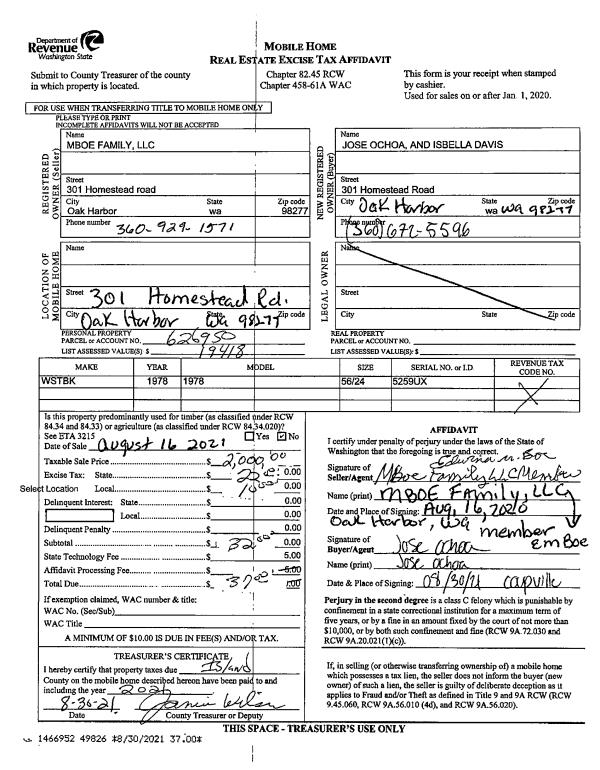 Department of
Revenue
Washington State
MOBILE HOME
REAL ESTATE EXCISE TAX AFFIDAVIT
Submit to County Treasurer of the county
in which property is located.
Chapter 82.45 RCW
Chapter 458-61A WAC
This form is your receipt when stamped
by cashier.
Used for sales on or after Jan 1, 2020.
FOR USE WHEN TRANSFERRING TITLE TO MOBILE HOME ONLY
PLEASE TYPE OR PRINT
INCOMPLETE AFFIDAVITS WILL NOT BE ACCEPTED
REGISTERED OWNER (Seller)
Name
MBOE FAMILY, LLC
Street
301 Homestead road
City State Zip code
Oak Harbor wa 98277
Phone number 360-929-1571
NEW REGISTERED OWNER (Buyer)
Name
JOSE OCHOA, AND ISBELLA DAVIS
Street
301 Homestead Road
City State Zip code
Oak Harbor wa wa 98277
Phone number
(360) 672-5596
LOCATION OF MOBILE HOME
Name
Street 301 Homestead Rd.
City State Zip code
Oak Harbor wa 98277
LEGAL OWNER
Name
Street
City State Zip code
PERSONAL PROPERTY
PARCEL or ACCOUNT NO. 626950
LIST ASSESSED VALUE(S) $ 19418
REAL PROPERTY
PARCEL or ACCOUNT NO.
LIST ASSESSED VALUE(S) $
MAKE YEAR MODEL SIZE SERIAL NO. or I.D. REVENUE TAX CODE NO.
WSTBK 1978 1978 56/24 5259UX X
Is this property predominantly used for timber (as classified under RCW
84.34 and 84.33) or agriculture (as classified under RCW 84.34.020)?
See ETA 3215 Yes No
Date of Sale August 16 2021
Taxable Sale Price $ 2,000.00
Excise Tax: State $ 0.00
Select Location Local $ 0.00
Delinquent Interest: State $ 0.00
Local $ 0.00
Delinquent Penalty $ 0.00
Subtotal $ 32.00 0.00
State Technology Fee $ 5.00
Affidavit Processing Fee $ 5.00
Total Due $ 37.00
If exemption claimed, WAC number & title:
WAC No. (Sec/Sub)
WAC Title
A MINIMUM OF $10.00 IS DUE IN FEE(S) AND/OR TAX.
TREASURER'S CERTIFICATE
I hereby certify that property taxes due Island
County on the mobile home described hereon have been paid to and
including the year 2021
8-30-21
Date County Treasurer or Deputy
AFFIDAVIT
I certify under penalty of perjury under the laws of the State of
Washington that the foregoing is true and correct.
Edwina M. Boe
Signature of
Seller/Agent MBoe Family LLC Member
Name (print) MBOE Family, LLC
Date and Place of Signing: Aug, 16, 2020
Oak Harbor, Wa member
EmBoe
Signature of
Buyer/Agent Jose Ochoa
Name (print) Jose Ochoa
Date & Place of Signing: 08/30/21
Perjury in the second degree is a class C felony which is punishable by
confinement in a state correctional institution for a maximum term of
five years, or by a fine in an amount fixed by the court of not more than
$10,000, or by both such confinement and fine (RCW 9A.72.030 and
RCW 9A.20.021(1)(c)).
If, in selling (or otherwise transferring ownership of) a mobile home
which possesses a tax lien, the seller does not inform the buyer (new
owner) of such a lien, the seller is guilty of deliberate deception as it
applies to Fraud and/or Theft as defined in Title 9 and 9A RCW (RCW
9.45.060, RCW 9A.56.010 (4d), and RCW 9A.56.020).
THIS SPACE - TREASURER'S USE ONLY
1466952 49826 *8/30/2021 37.00*